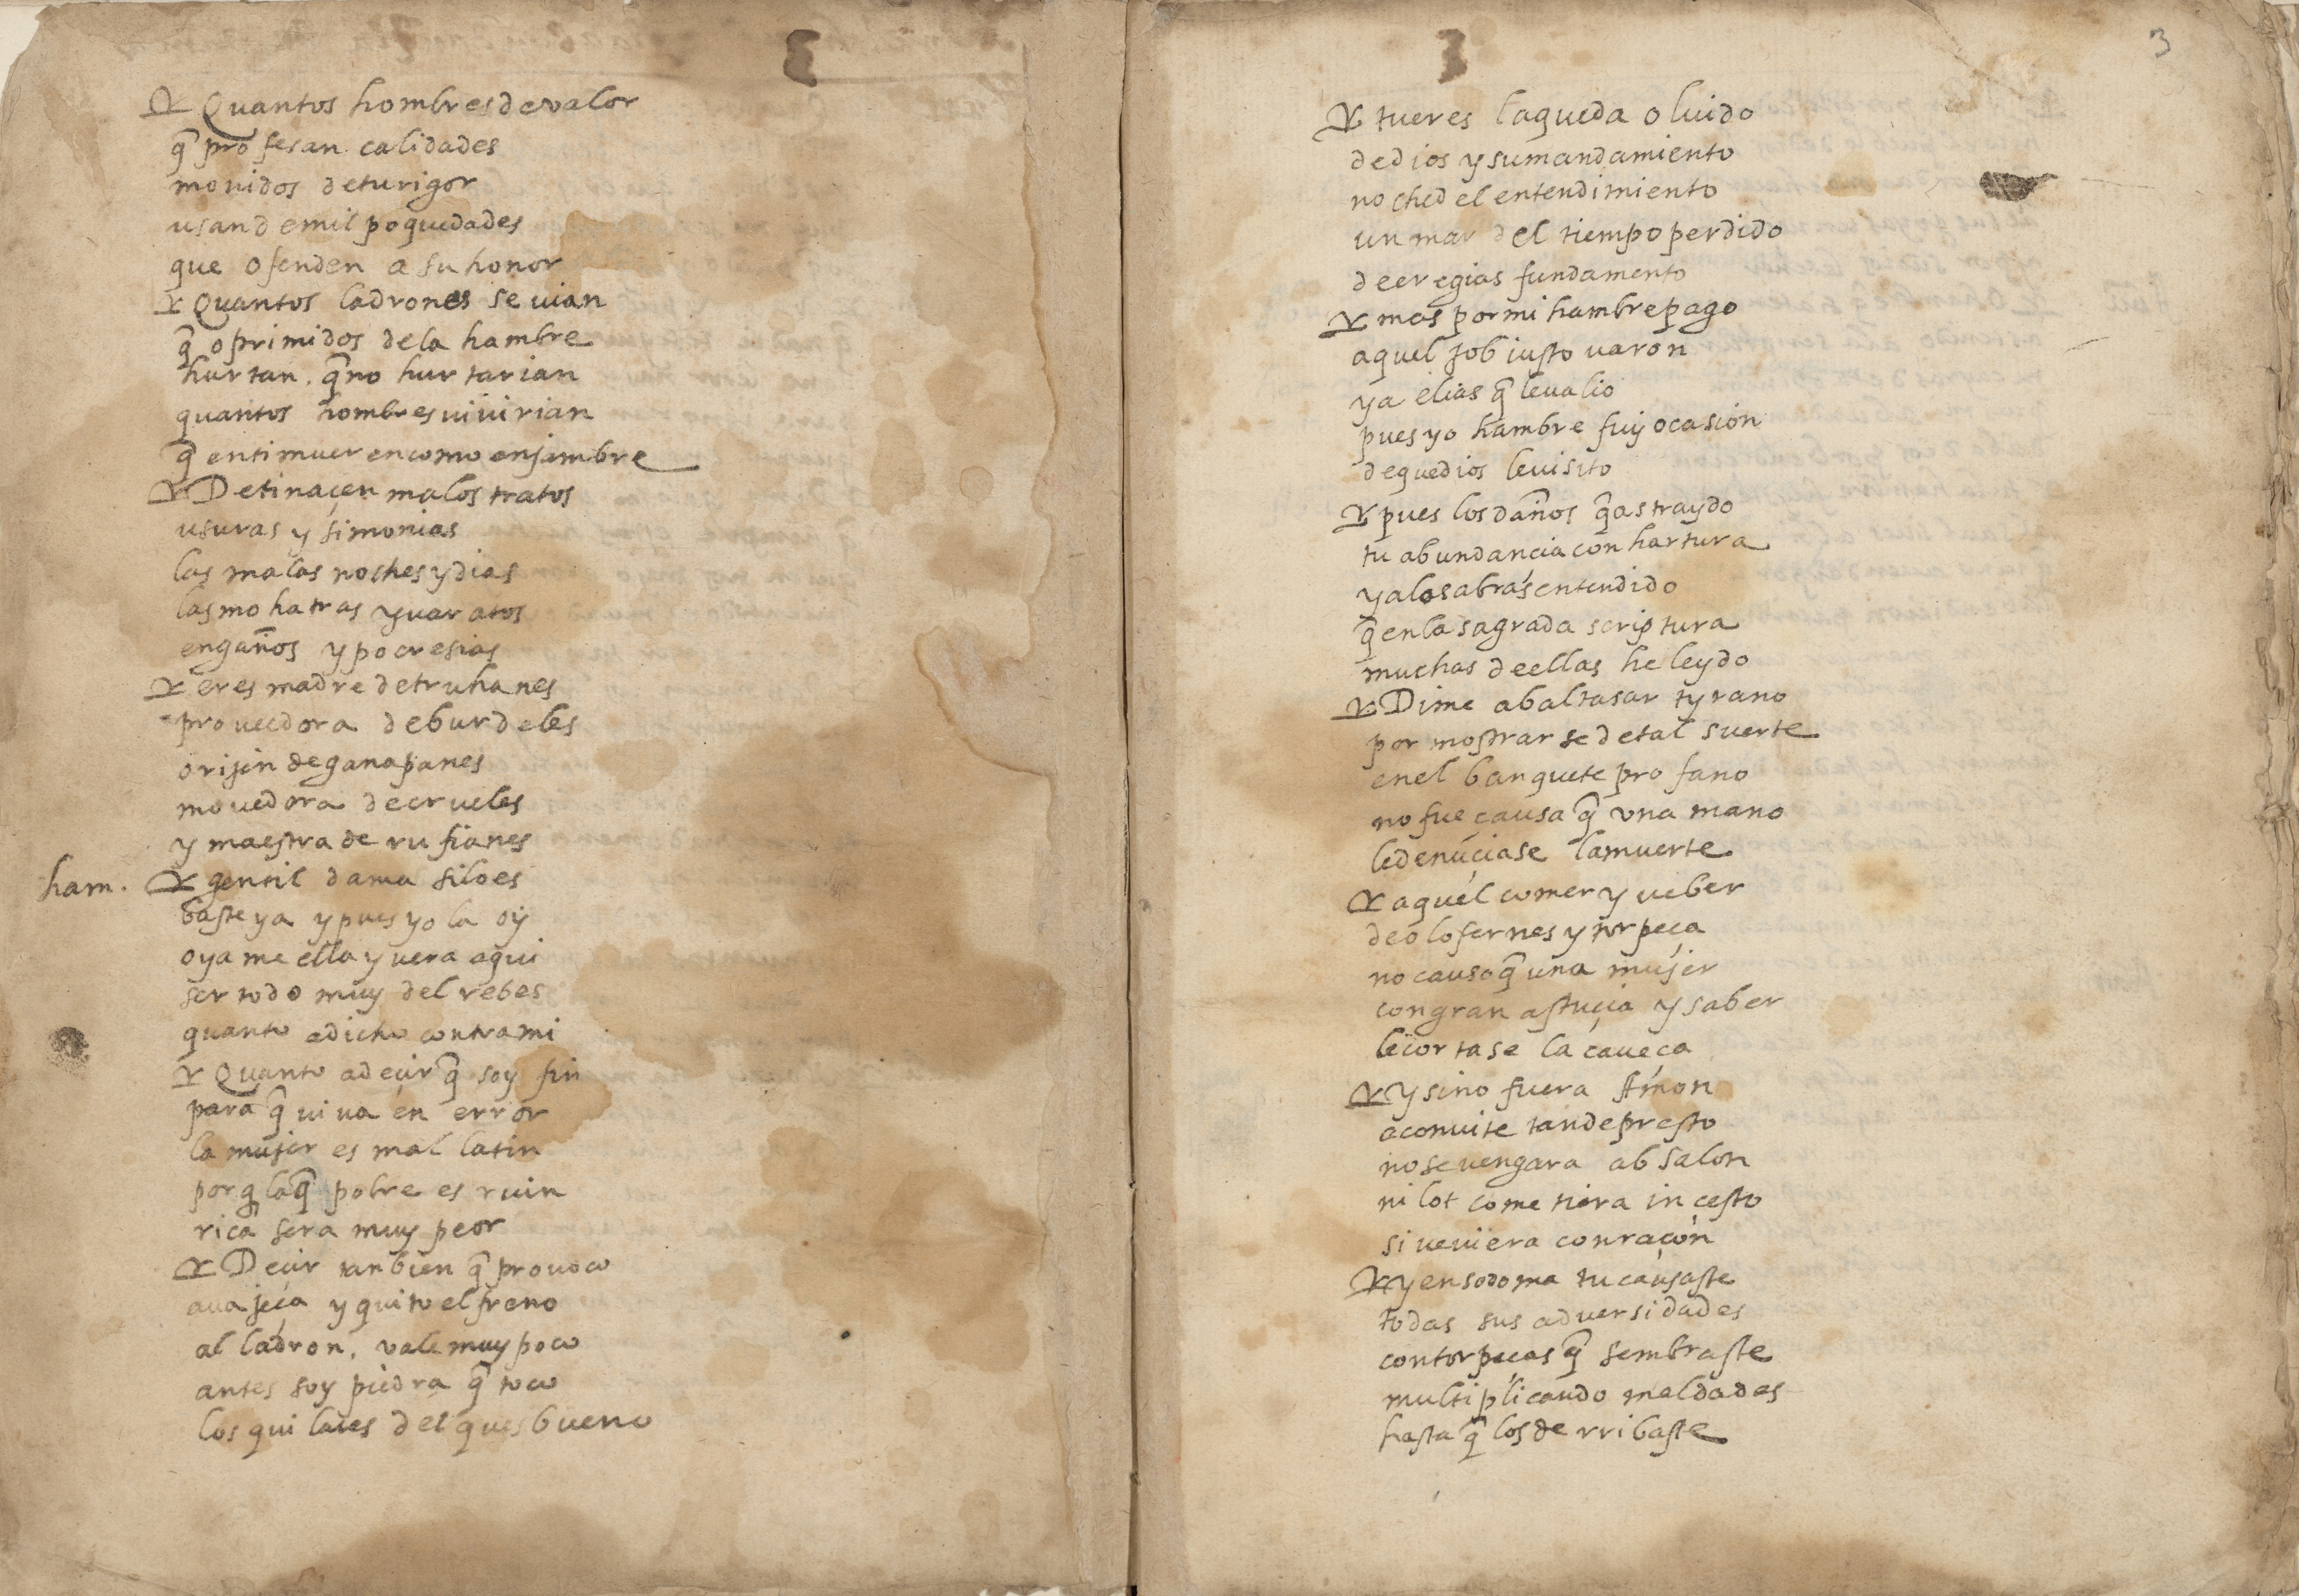 Quantos hombres de valor
q̃ profesan calidades
mouidos de tu rigor
usan de mil poquedades
que ofenden a su honor
Quantos ladrones se uian
q̃ oprimidos de la hambre
hurtan. q̃ no hurtarian
quantos hombres uiuirian
q̃ en ti mueren como enjambre
De ti naçen malos tratos
usuras y simonias
las malas noches y dias
las mohatras y uaratos
engaños ypocresias
eres madre de truhanes
proueedora de burdeles
orijen de ganapanes
mouedora de crueles
y maestra de rufianes
ham. gentil dama si lo es
baste ya y pues yo la oy
oyame ella y uera aqui
ser todo muy del rebes
quanto a dicho contra mi
Quanto a deçir q̃ soy fin
para q̃ uiua en error
la mujer es mal latin
porq̃ la q̃ pobre es ruin
rica sera muy peor
Deçir tanbien q̃ prouoco
auajeça y quito el freno
al ladron. vale muy poco
antes soy piedra q̃ toco
los quilates del ques bueno
3
tu eres la queda oluido
de dios y su mandamiento
noche del entendimiento
un mar del tiempo perdido
de eregias fundamento
mas por mi hambre pago
aquel Job iusto uaron
y a elias q̃ le ualio
pues yo hambre fuy ocasion
de que dios le uisito
pues los daños q̃ as traydo
tu abundancia con hartura
ya los abras entendido
q̃ en la sagrada scriptura
muchas de ellas he leydo
Dime a baltasar tyrano
por mostrarse de tal suerte
en el banquete profano
no fue causa q̃ vna mano
le denũçiase la muerte
aquel comer y ueber
de olofernes y torpeça
no causo q̃ una mujer
con gran astuçia y saber
le cortase la caueça
Y si no fuera Amon
a conuite tan de presto
no se vengara absalon
ni lot cometiera incesto
si veuiera con raçon
y en sodoma tu causaste
todas sus aduersidades
con torpeças q̃ sembraste
multiplicando maldades
hasta q̃ los derribaste